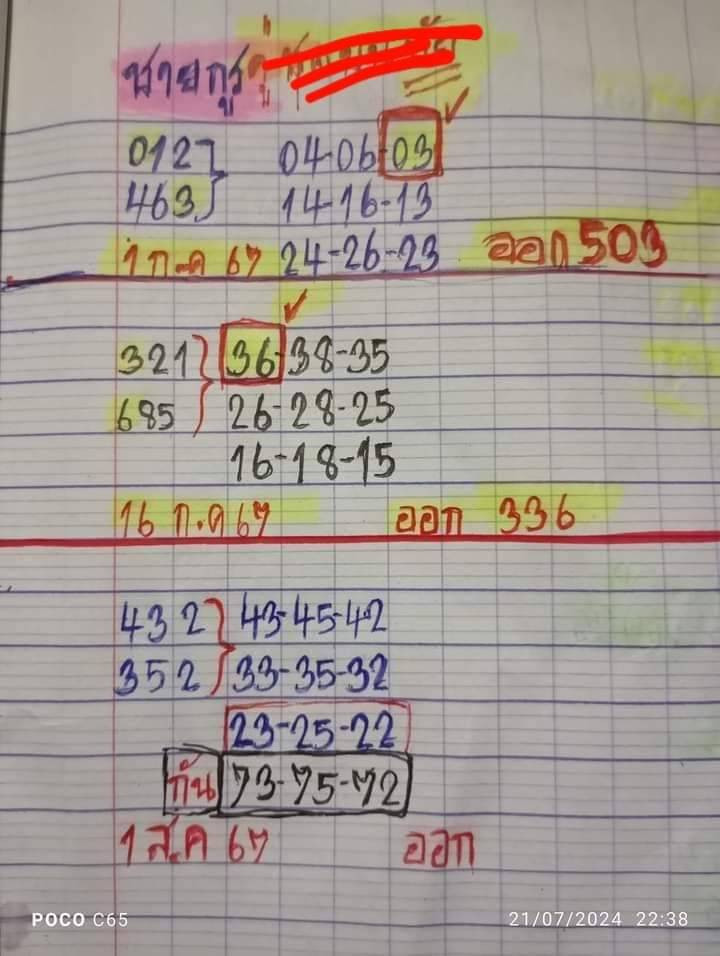 ชายกู
012 04-06-03
463 14-16-13
1 ก.ค 67 24-26-23 ออก 503
321 36-38-35
685 26-28-25
16-18-15
16 ก.ค 67 ออก 336
432 43-45-42
352 33-35-32
23-25-22
กัน 73-75-72
1 ส.ค 67 ออก
POCO C65 21/07/2024 22:38